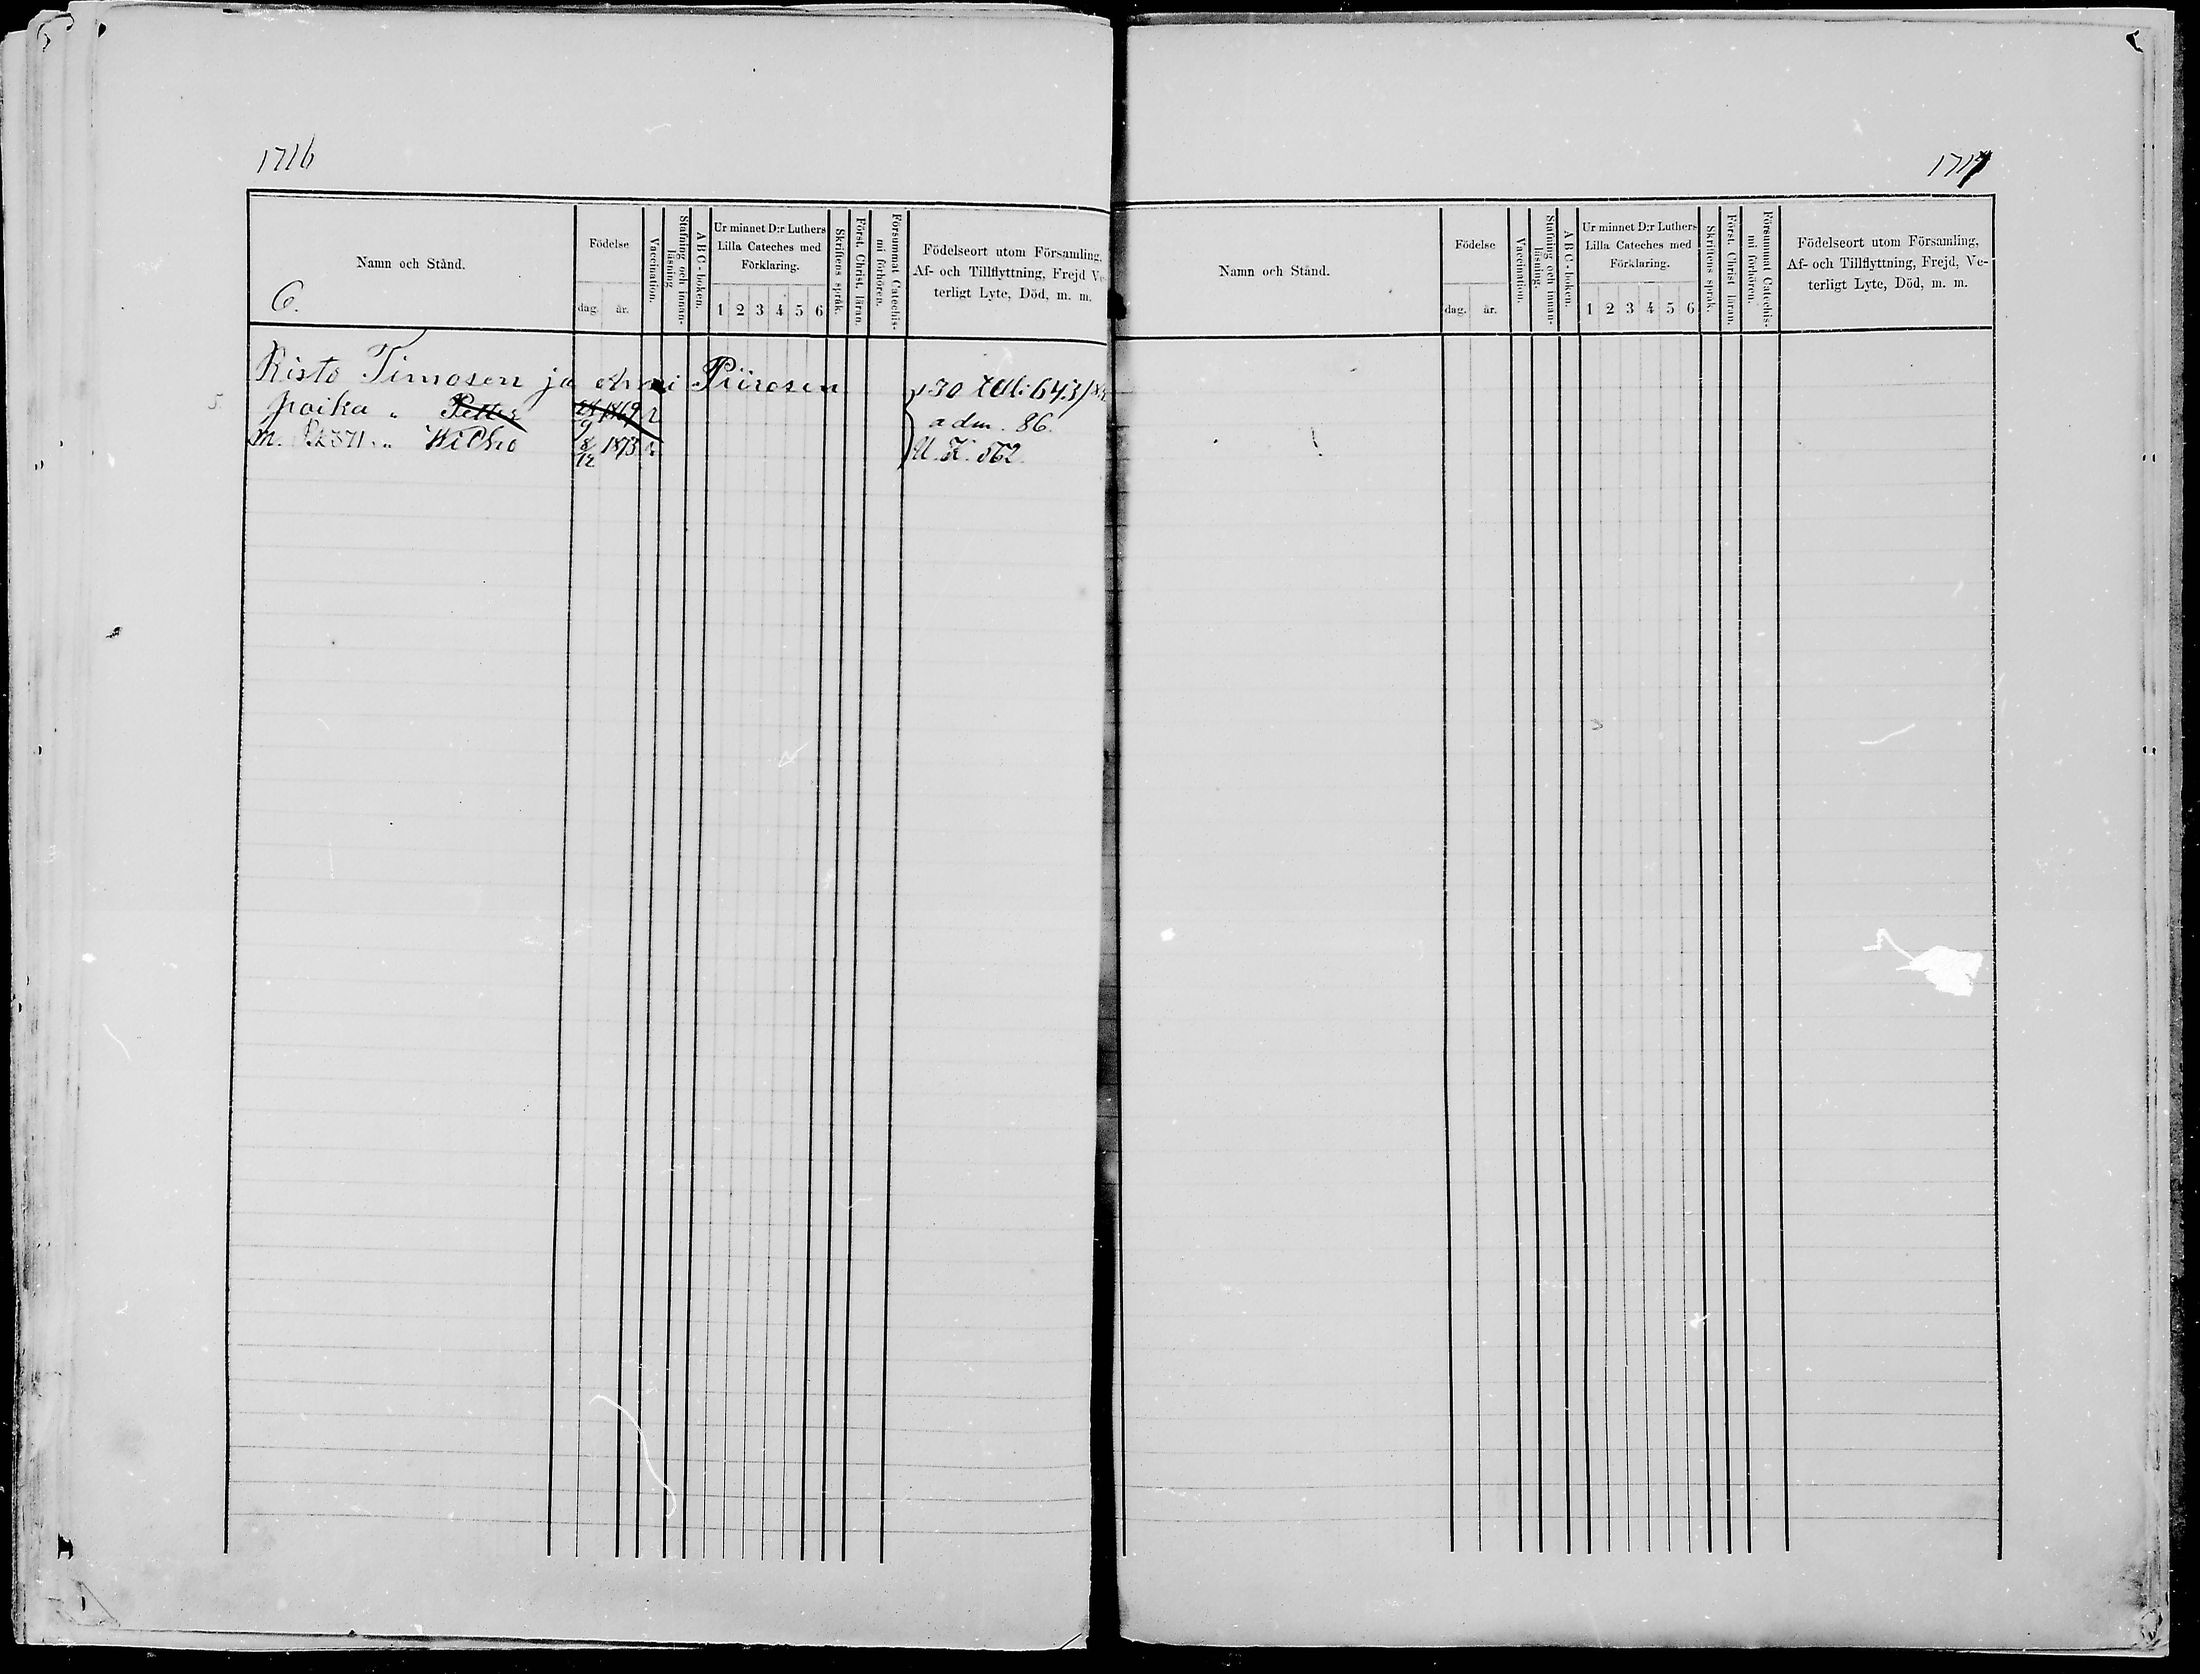 1716
Namn och Stånd.
6.
Födelse
dag. år.
Vaccination.
Stafning och innanläsning
A B C - boken.
Ur minnet D:r Luthers
Lilla Cateches med
Förklaring.
1 2 3 4 5 6
Skriftens språk.
Först. Christ. läran.
Försummat Catechismi förhören.
Födelseort utom Församling,
Af- och Tillflyttning, Frejd Ve-
terligt Lyte, Död, m. m.
Risto Timosen ja Anni Piirosen
poika " Petter 1869
m. " Wilho 8/12 1873
30 643
adm. 86.
U. K. 562.
1717
Namn och Stånd.
Födelse
dag. år.
Vaccination.
Stafning och innanläsning.
A B C - boken.
Ur minnet D:r Luthers
Lilla Cateches med
Förklaring.
1 2 3 4 5 6
Skriftens språk.
Först. Christ läran.
Försummat Catechismi förhören.
Födelseort utom Församling,
Af- och Tillflyttning, Frejd, Ve-
terligt Lyte, Död, m. m.